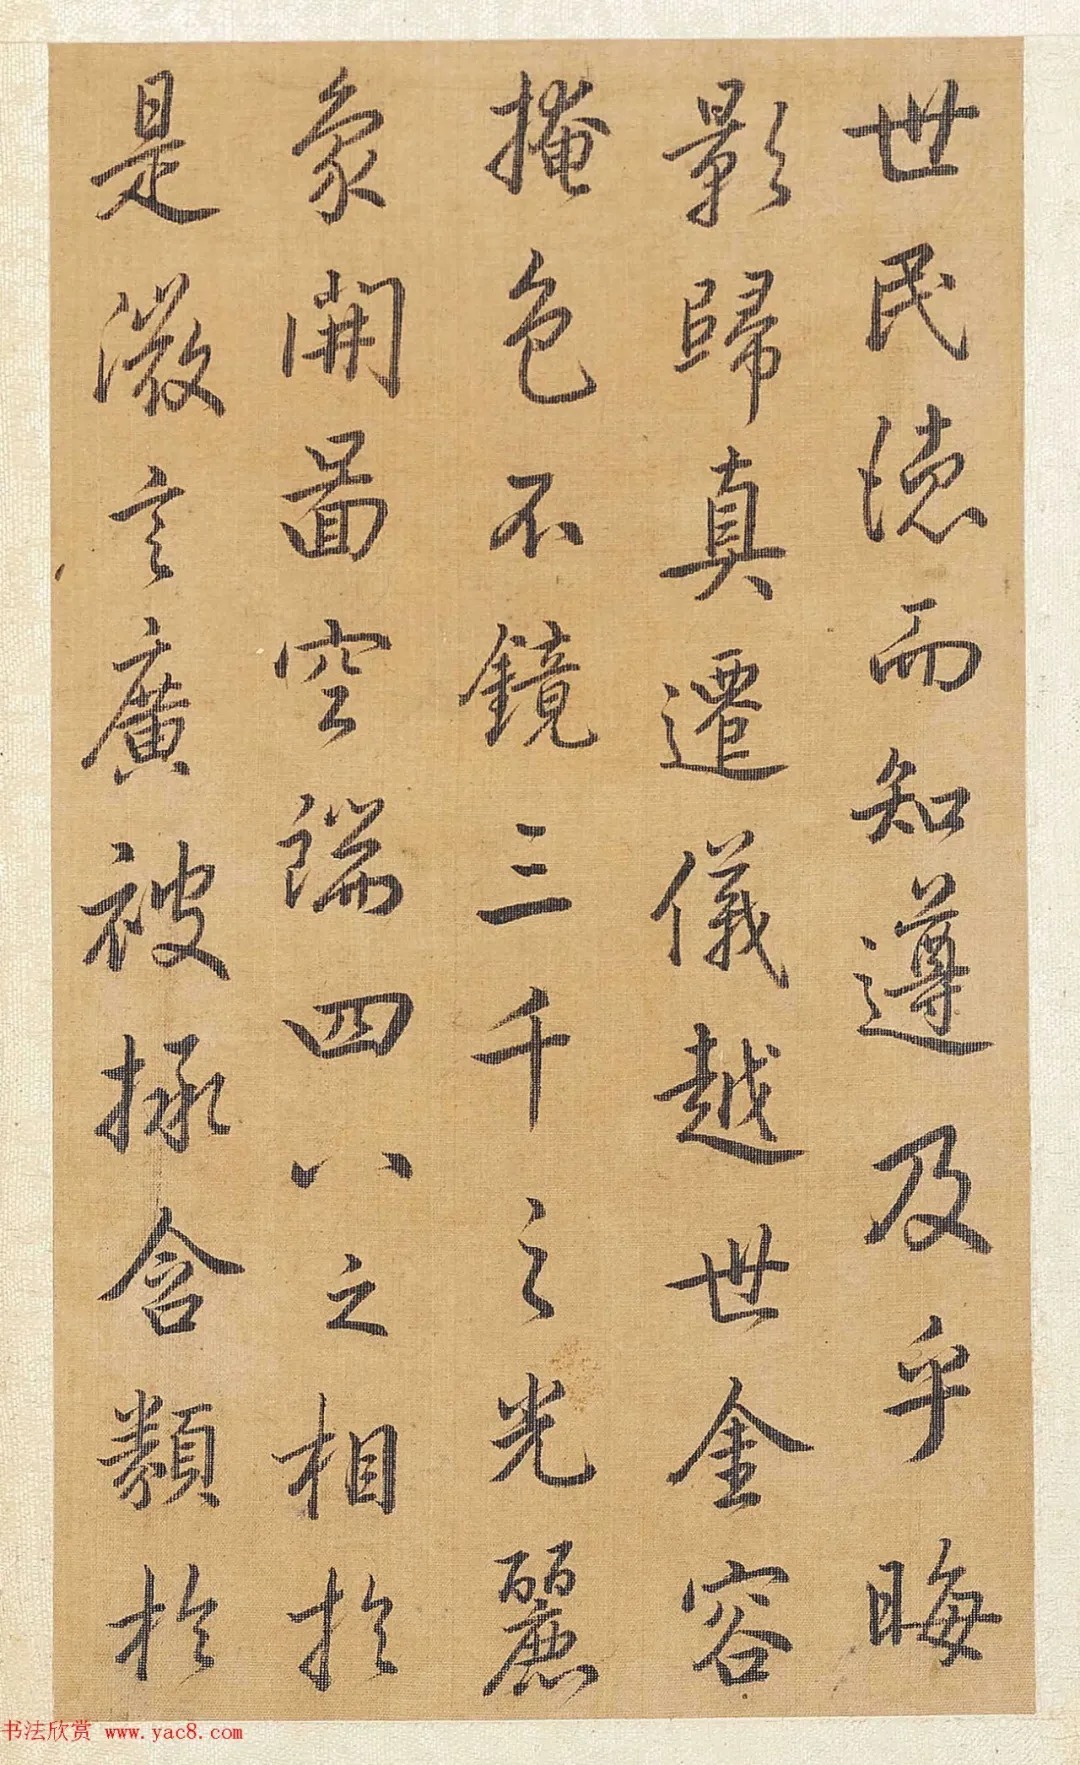 世民德而知遵及乎晦
影歸真遷儀越世金容
掩色不鏡三千之光麗
象開圖空端四八之相於
是微言廣被拯含類於
书法欣赏 www.yac8.com